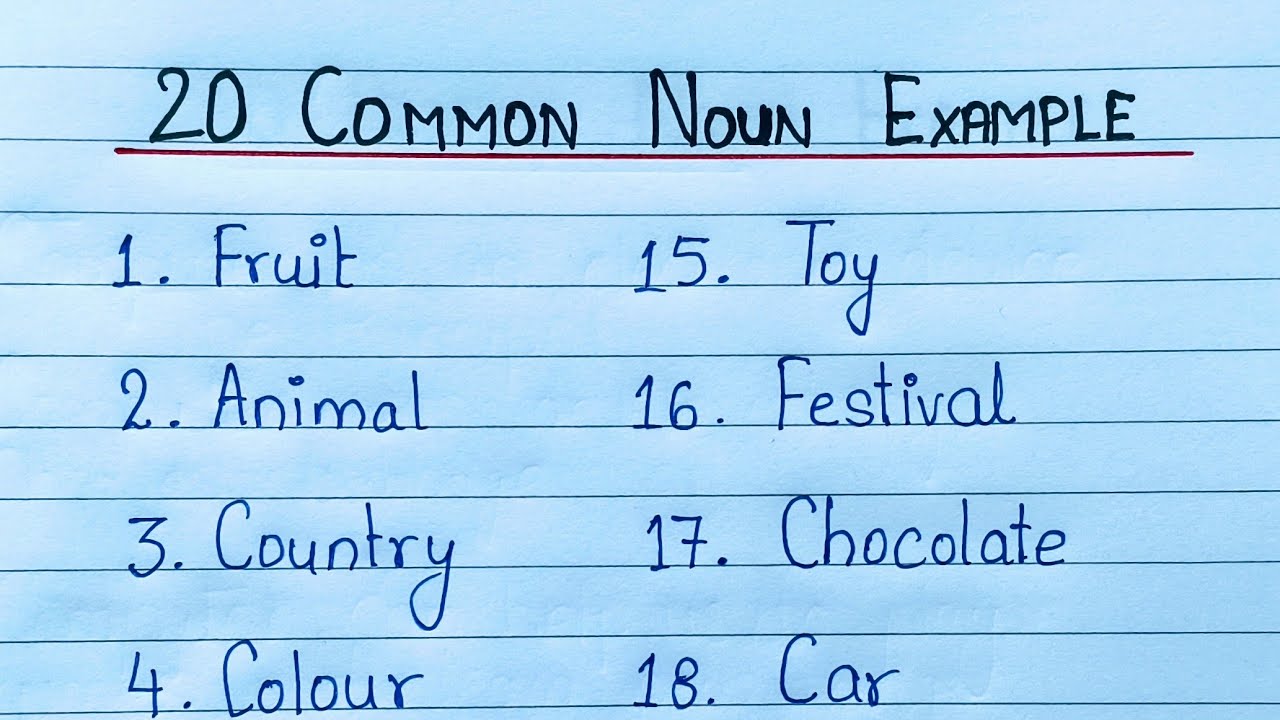 20 COMMON NOUN EXAMPLE
1. Fruit
2. Animal
3. Country
4. Colour
15. Toy
16. Festival
17. Chocolate
18. Car